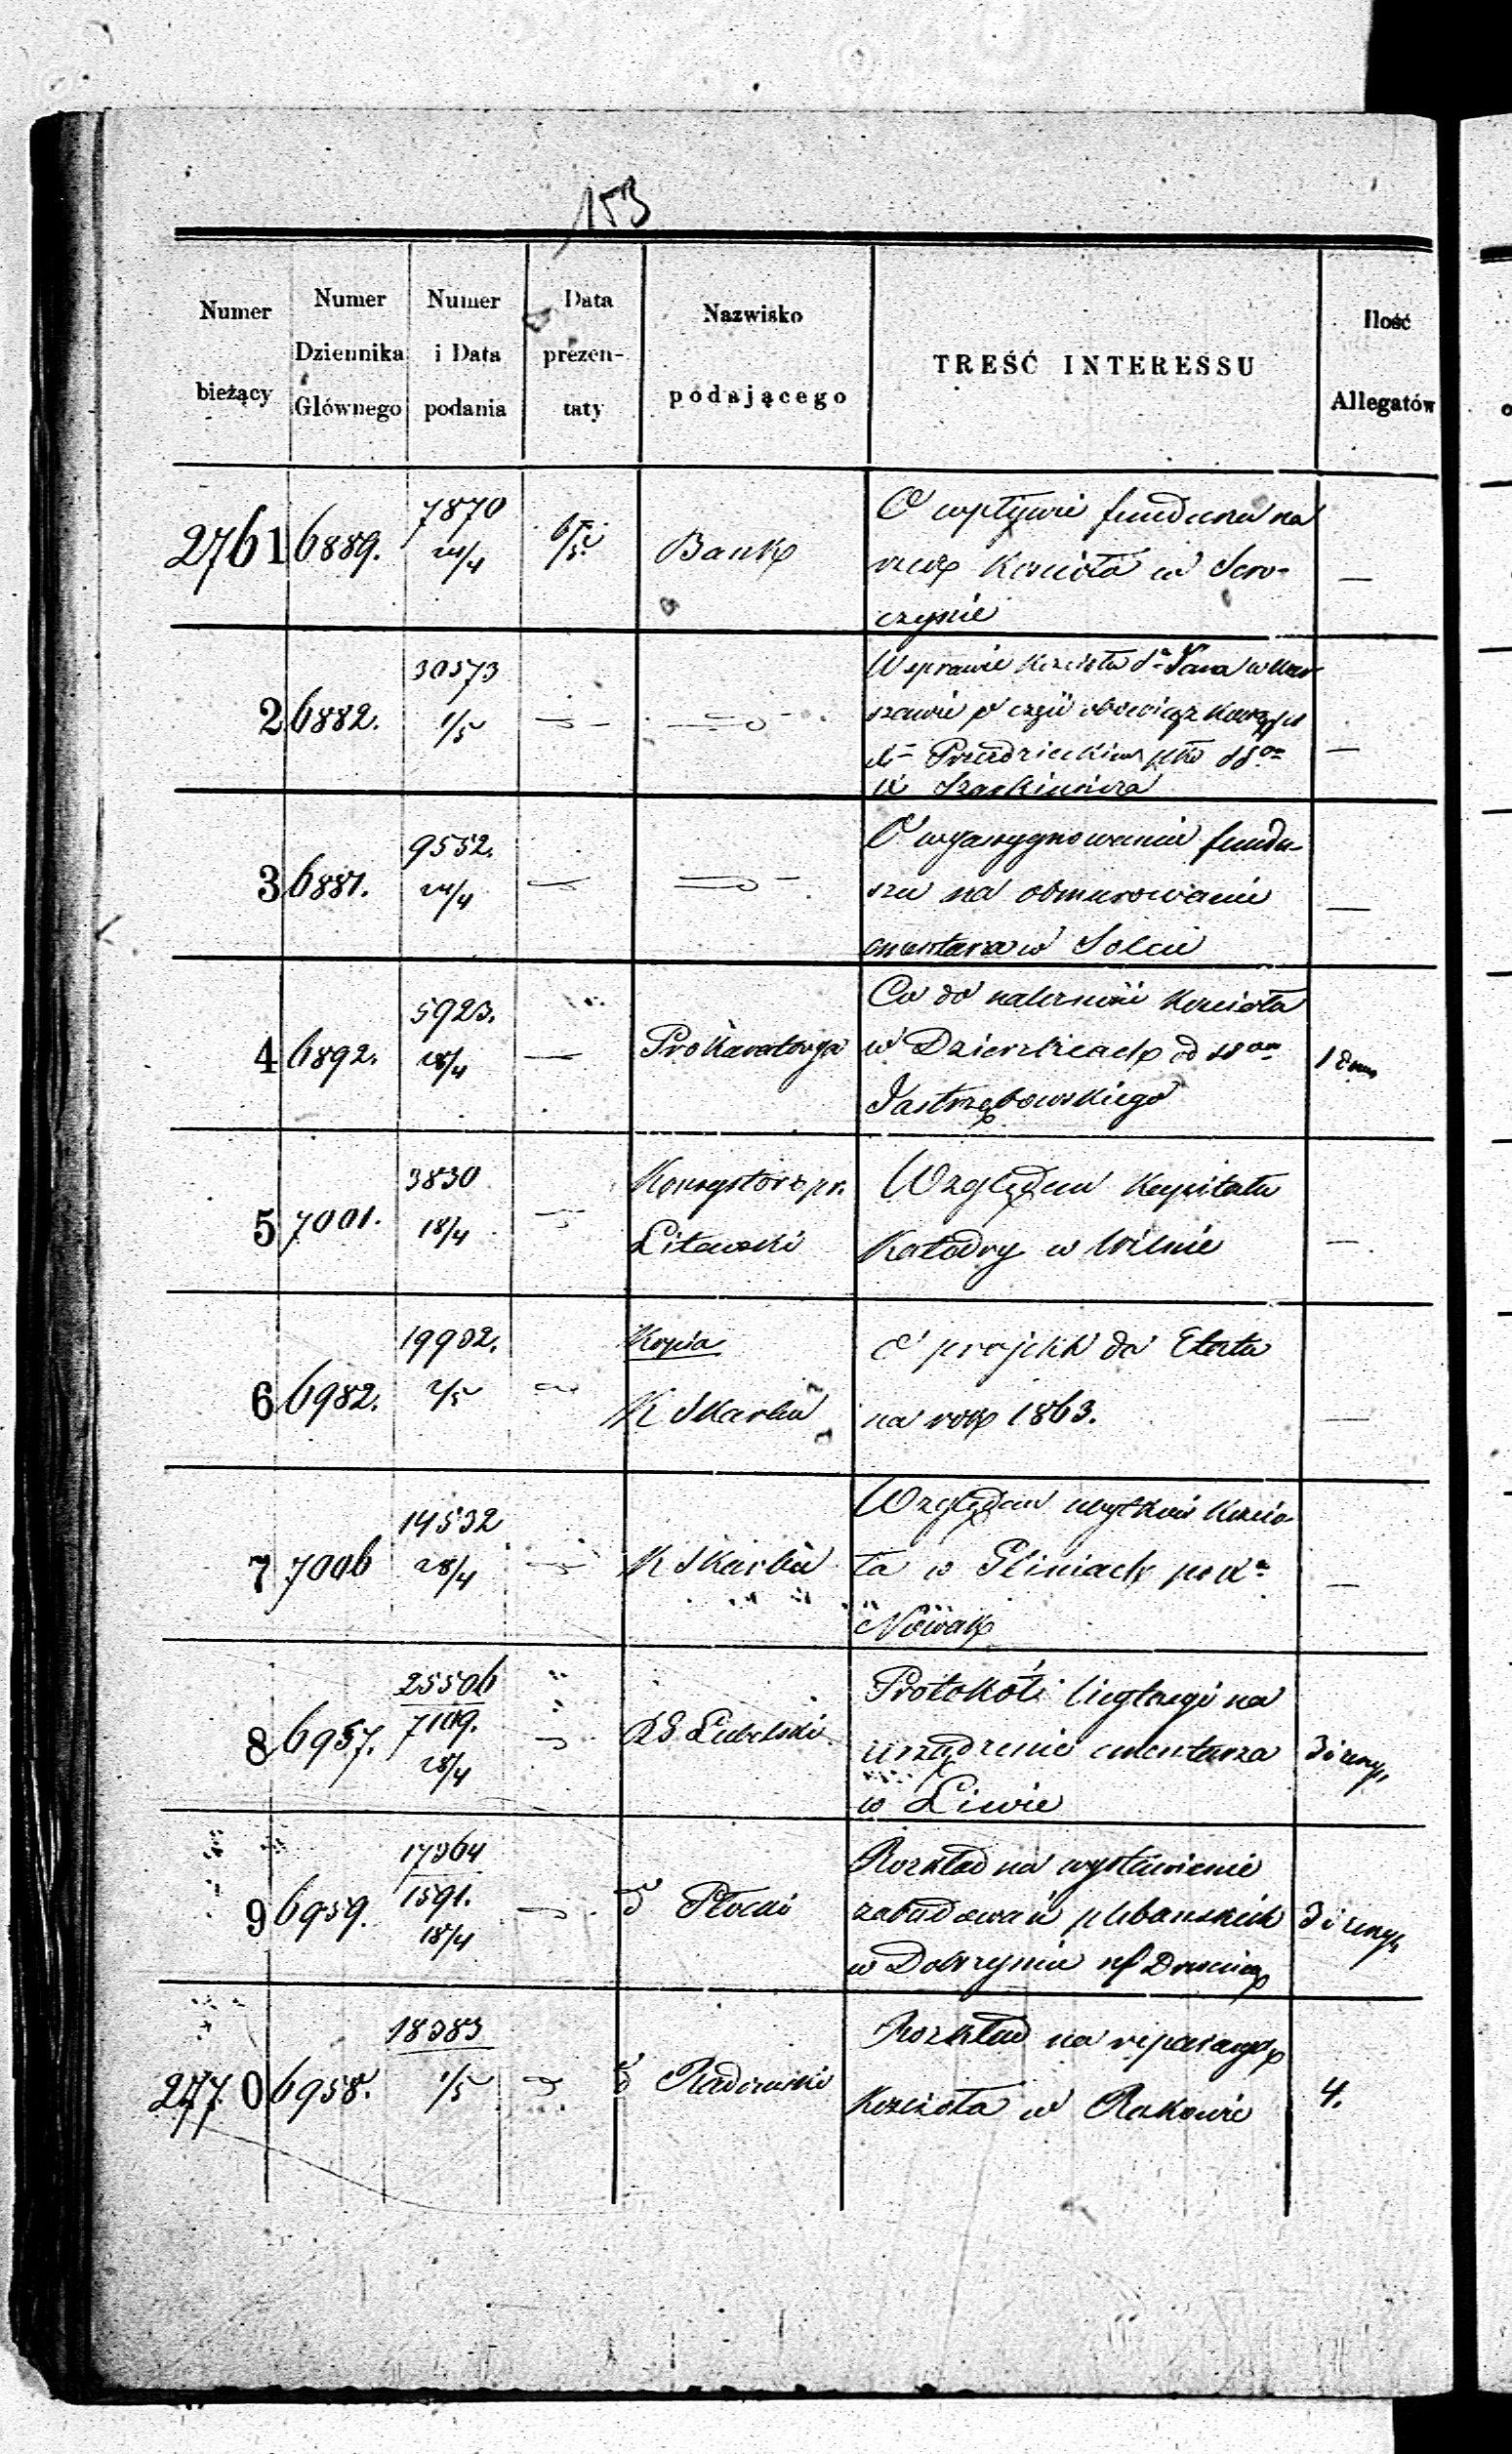 153
Numer bieżący
Numer Dziennika Głównego
Numer i Data podania
Data prezentaty
Nazwisko podającego
TREŚĆ INTERESSU
Ilość Allegatów
2761 6889. 7870 24/4 6/5 Bank
O wpływie funduszu na
rzecz Kościoła w Sero-
czynie
—
2 6882. 30573 1/5
W sprawie Kościoła Sgo Jana w War-
szawie
—
3 6881. 9552. 24/4
O wyasygnowanie fundu-
szu na obmurowanie
cmentarza w Solcu
—
4 6892. 5923. 28/4 — Prokuratorya
Co do należności Kościoła
w Dzierzbicach od
Jastrzębowskiego
5 7001. 3830 18/4
Konsystorz pr.
Litewski
Względem Kapitału
Katedry w Wilnie
—
6 6982. 19902. 2/5
Kopia
K Skarbu
O projekt do Etatu
na rok 1863.
—
7 7006 14532 28/4 K Skarbu
Względem użytków Kościo-
ła w Gliniach
Nowak
—
8 6957. 25506
7109.
28/4
RG Lubelski
Protokół licytacyi na
urządzenie cmentarza
w Liwie
9 6959. 17364
1591.
18/4
Płocki
Rozkład na wystawienie
zabudowań plebańskich
w Dobrzyniu n/ Drwencą
2770 6958. 18383
1/5
Radomski
Rozkład na reparacyę
Kościoła w Rakowie
4.